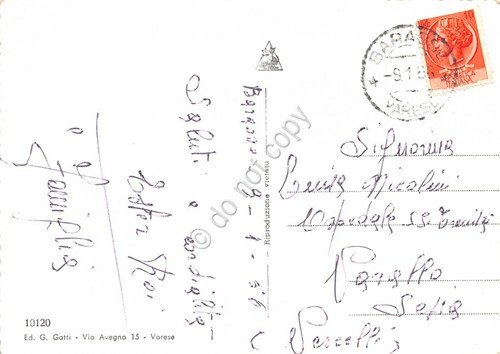 Barasso 9-1-56
Saluti e cordialità
Ester
e famiglia
10120
Ed. G. Gatti - Via Avegno 15 - Varese
Riproduzione vietata
© do not copy
BARASSO
-9.1.56
VARESE
10
Signorina
Luisa Nicolini
Ospedale SS. Trinità
Varallo
Sesia
Vercelli